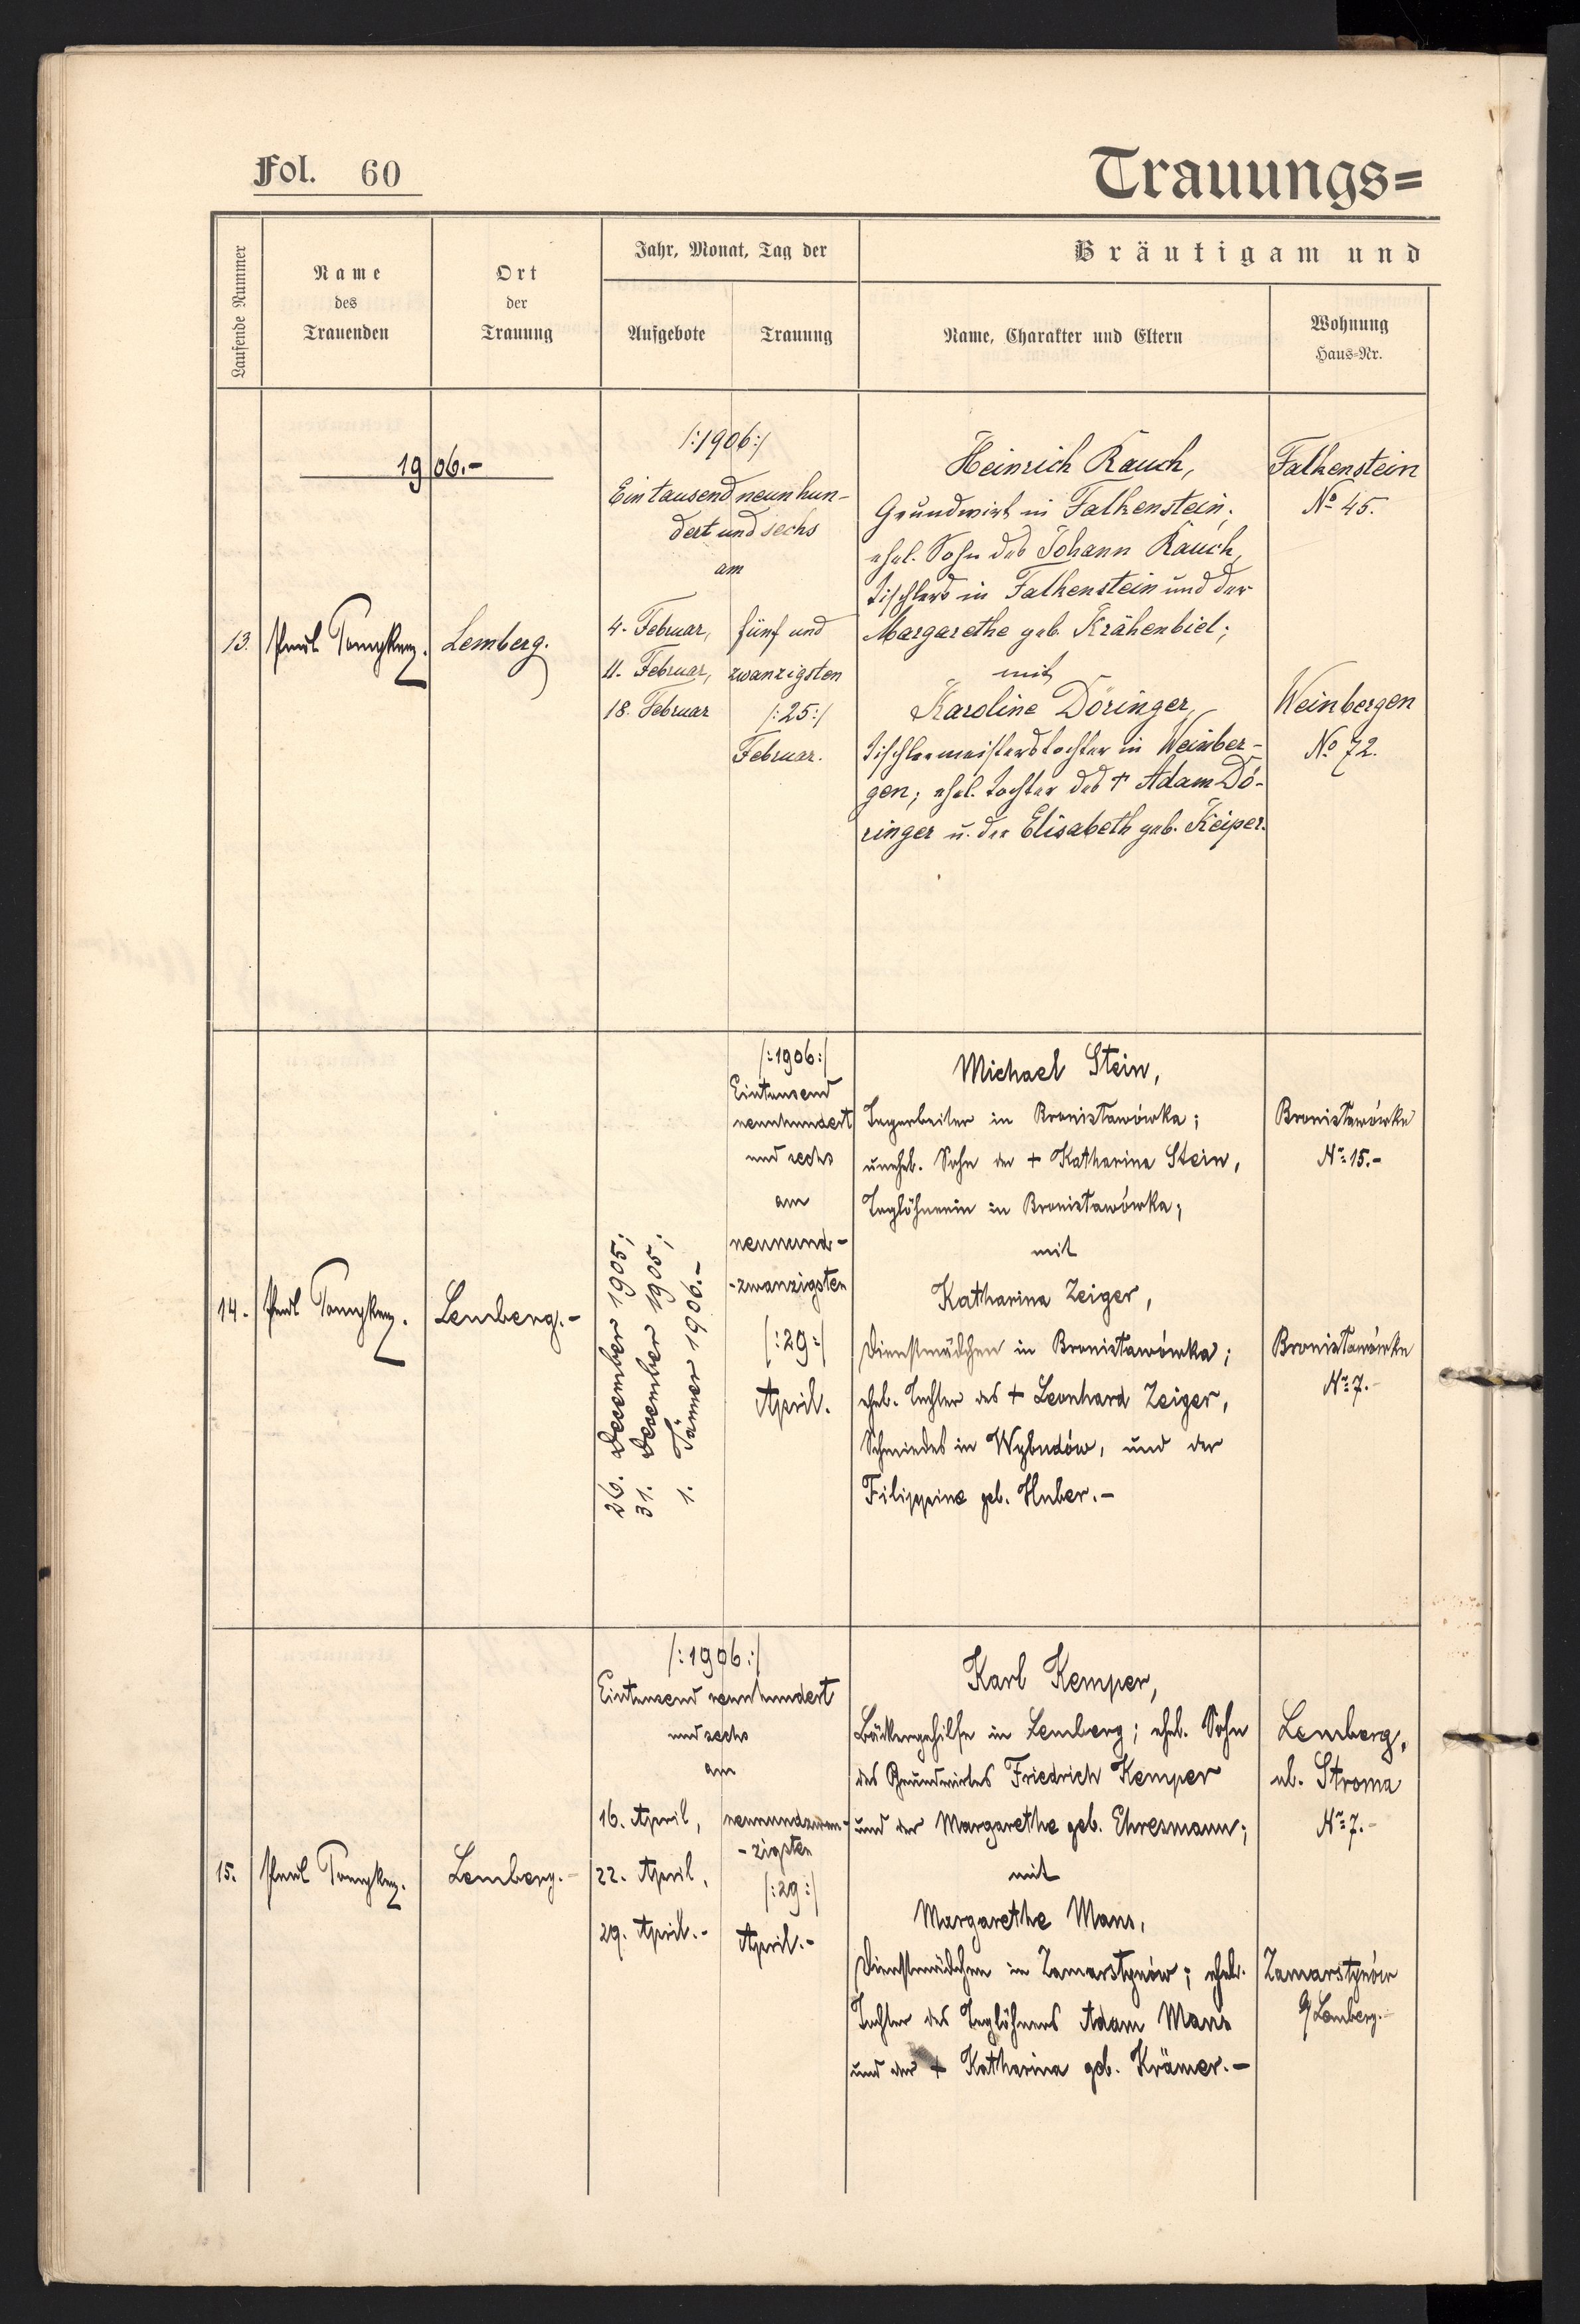 Fol. 60
Trauungs=
Laufende Nummer
Name
des
Trauenden
Ort
der
Trauung
Jahr, Monat, Tag der
Aufgebote
Trauung
Bräutigam und
Name, Charakter und Eltern
Wohnung
Haus-Nr.
1906.-
13.
Paul
Lemberg.
/:1906:/
Ein tausend neunhun-
dert und sechs
am
4. Februar,
11. Februar,
18. Februar
fünf und
zwanzigsten
/:25:/
Februar.
Heinrich Rauch,
Grundwirt in Falkenstein;
ehel. Sohn des Johann Rauch,
Tischlers in Falkenstein und der
Margarethe geb. Krähenbiel;
mit
Karoline Döringer,
Tischlermeisterstochter in Weinber-
gen; ehel. Tochter des † Adam Dö-
ringer u. der Elisabeth geb. Keiper.
Falkenstein
No 45.
Weinbergen
No 72.
14.
Paul
Lemberg.-
26. December 1905;
31. December 1905;
1. Jänner 1906.-
/:1906:/
Eintausend
neunhundert
und sechs
am
neunund-
-zwanzigsten
/:29:/
April.
Michael Stein,
Tagarbeiter in Bronisławówka;
unehel. Sohn der + Katharina Stein,
Taglöhnerin in Bronisławówka;
mit
Katharina Zeiger,
Dienstmädchen in Bronisławówka;
ehel. Tochter des + Leonhard Zeiger,
Schmiedes in Wybudów, und der
Filippine geb. Huber.-
Bronisławówka
No 15.-
Bronisławówka
No 7.-
15.
Paul
Lemberg.-
/:1906:/
Eintausend neunhundert
und sechs
am
16. April,
22. April,
29. April.-
neunundzwan-
-zigsten
/:29:/
April.-
Karl Kemper,
Bäckergehilfe in Lemberg; ehel. Sohn
des Grundwirtes Friedrich Kemper
und der Margarethe geb. Ehresmann;
mit
Margarethe Mans,
Dienstmädchen in Zamarstynów; ehel.
Tochter des Taglöhners Adam Mans
und der + Katharina geb. Krämer.-
Lemberg,
ul. Stroma
No 7.-
Zamarstynów
b/Lemberg.-